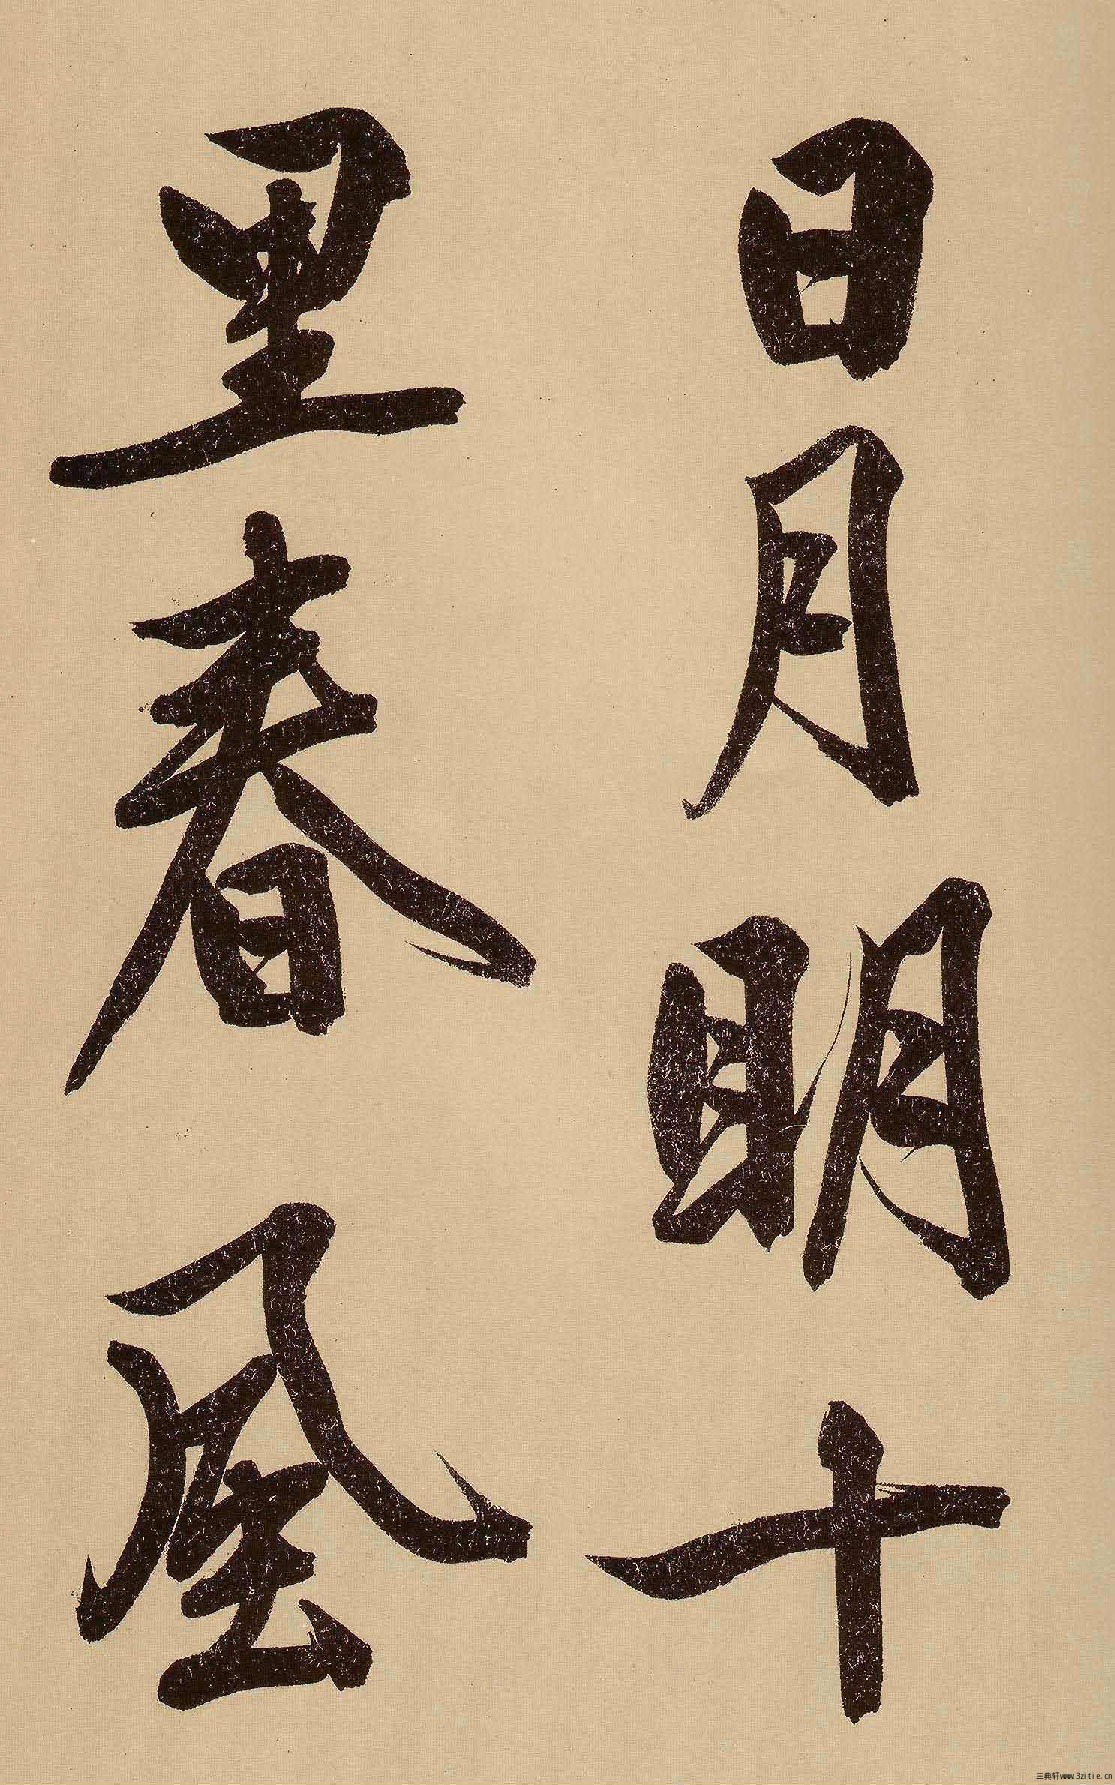 日月明十
里春風
三典轩www.3zitie.cn